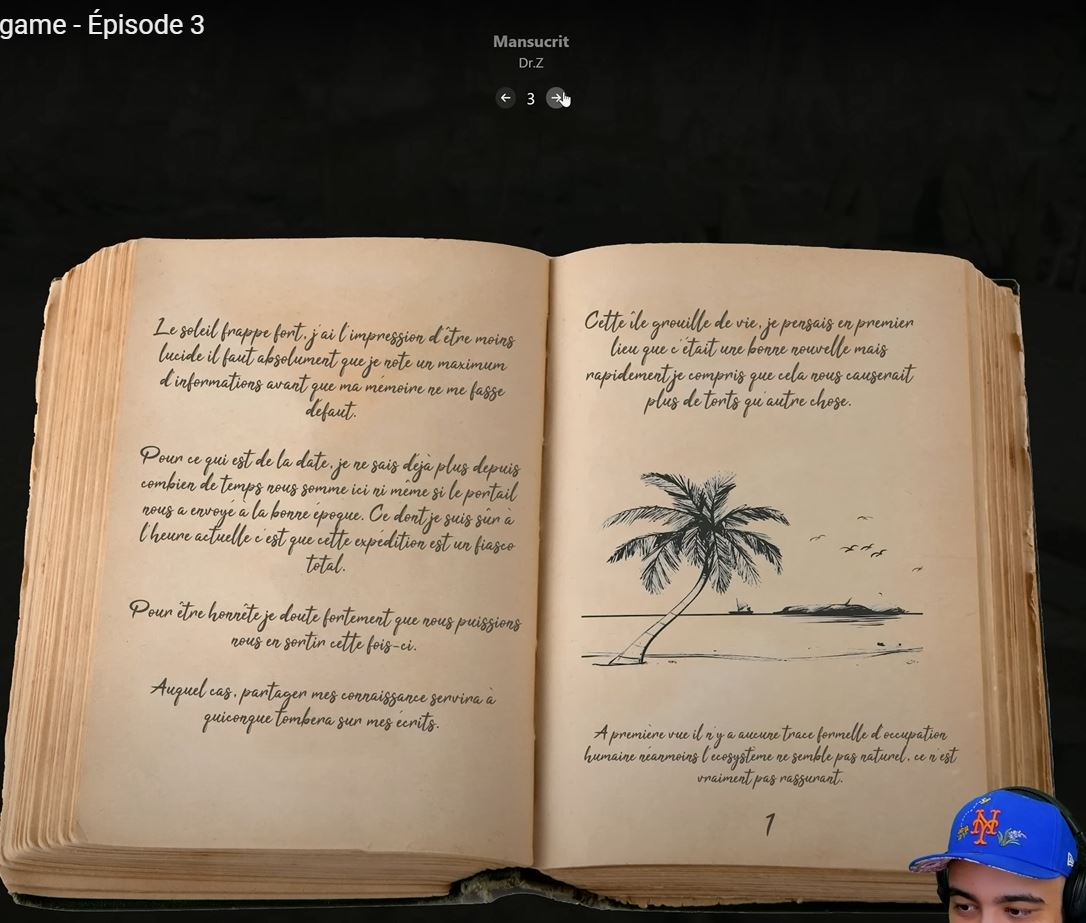 game - Épisode 3
Mansucrit
Dr.Z
3
Le soleil frappe fort, j'ai l'impression d'être moins
lucide il faut absolument que je note un maximum
d'informations avant que ma mémoire ne me fasse
défaut.
Pour ce qui est de la date, je ne sais déjà plus depuis
combien de temps nous somme ici ni même si le portail
nous a envoyé a la bonne époque. Ce dont je suis sûr à
l'heure actuelle c'est que cette expédition est un fiasco
total.
Pour être honnête je doute fortement que nous puissions
nous en sortir cette fois-ci.
Auquel cas, partager mes connaissance servira à
quiconque tombera sur mes écrits.
Cette île grouille de vie, je pensais en premier
lieu que c'était une bonne nouvelle mais
rapidement je compris que cela nous causerait
plus de torts qu'autre chose.
A première vue il n'y a aucune trace formelle d'occupation
humaine néanmoins l'écosystème ne semble pas naturel, ce n'est
vraiment pas rassurant.
1
NY